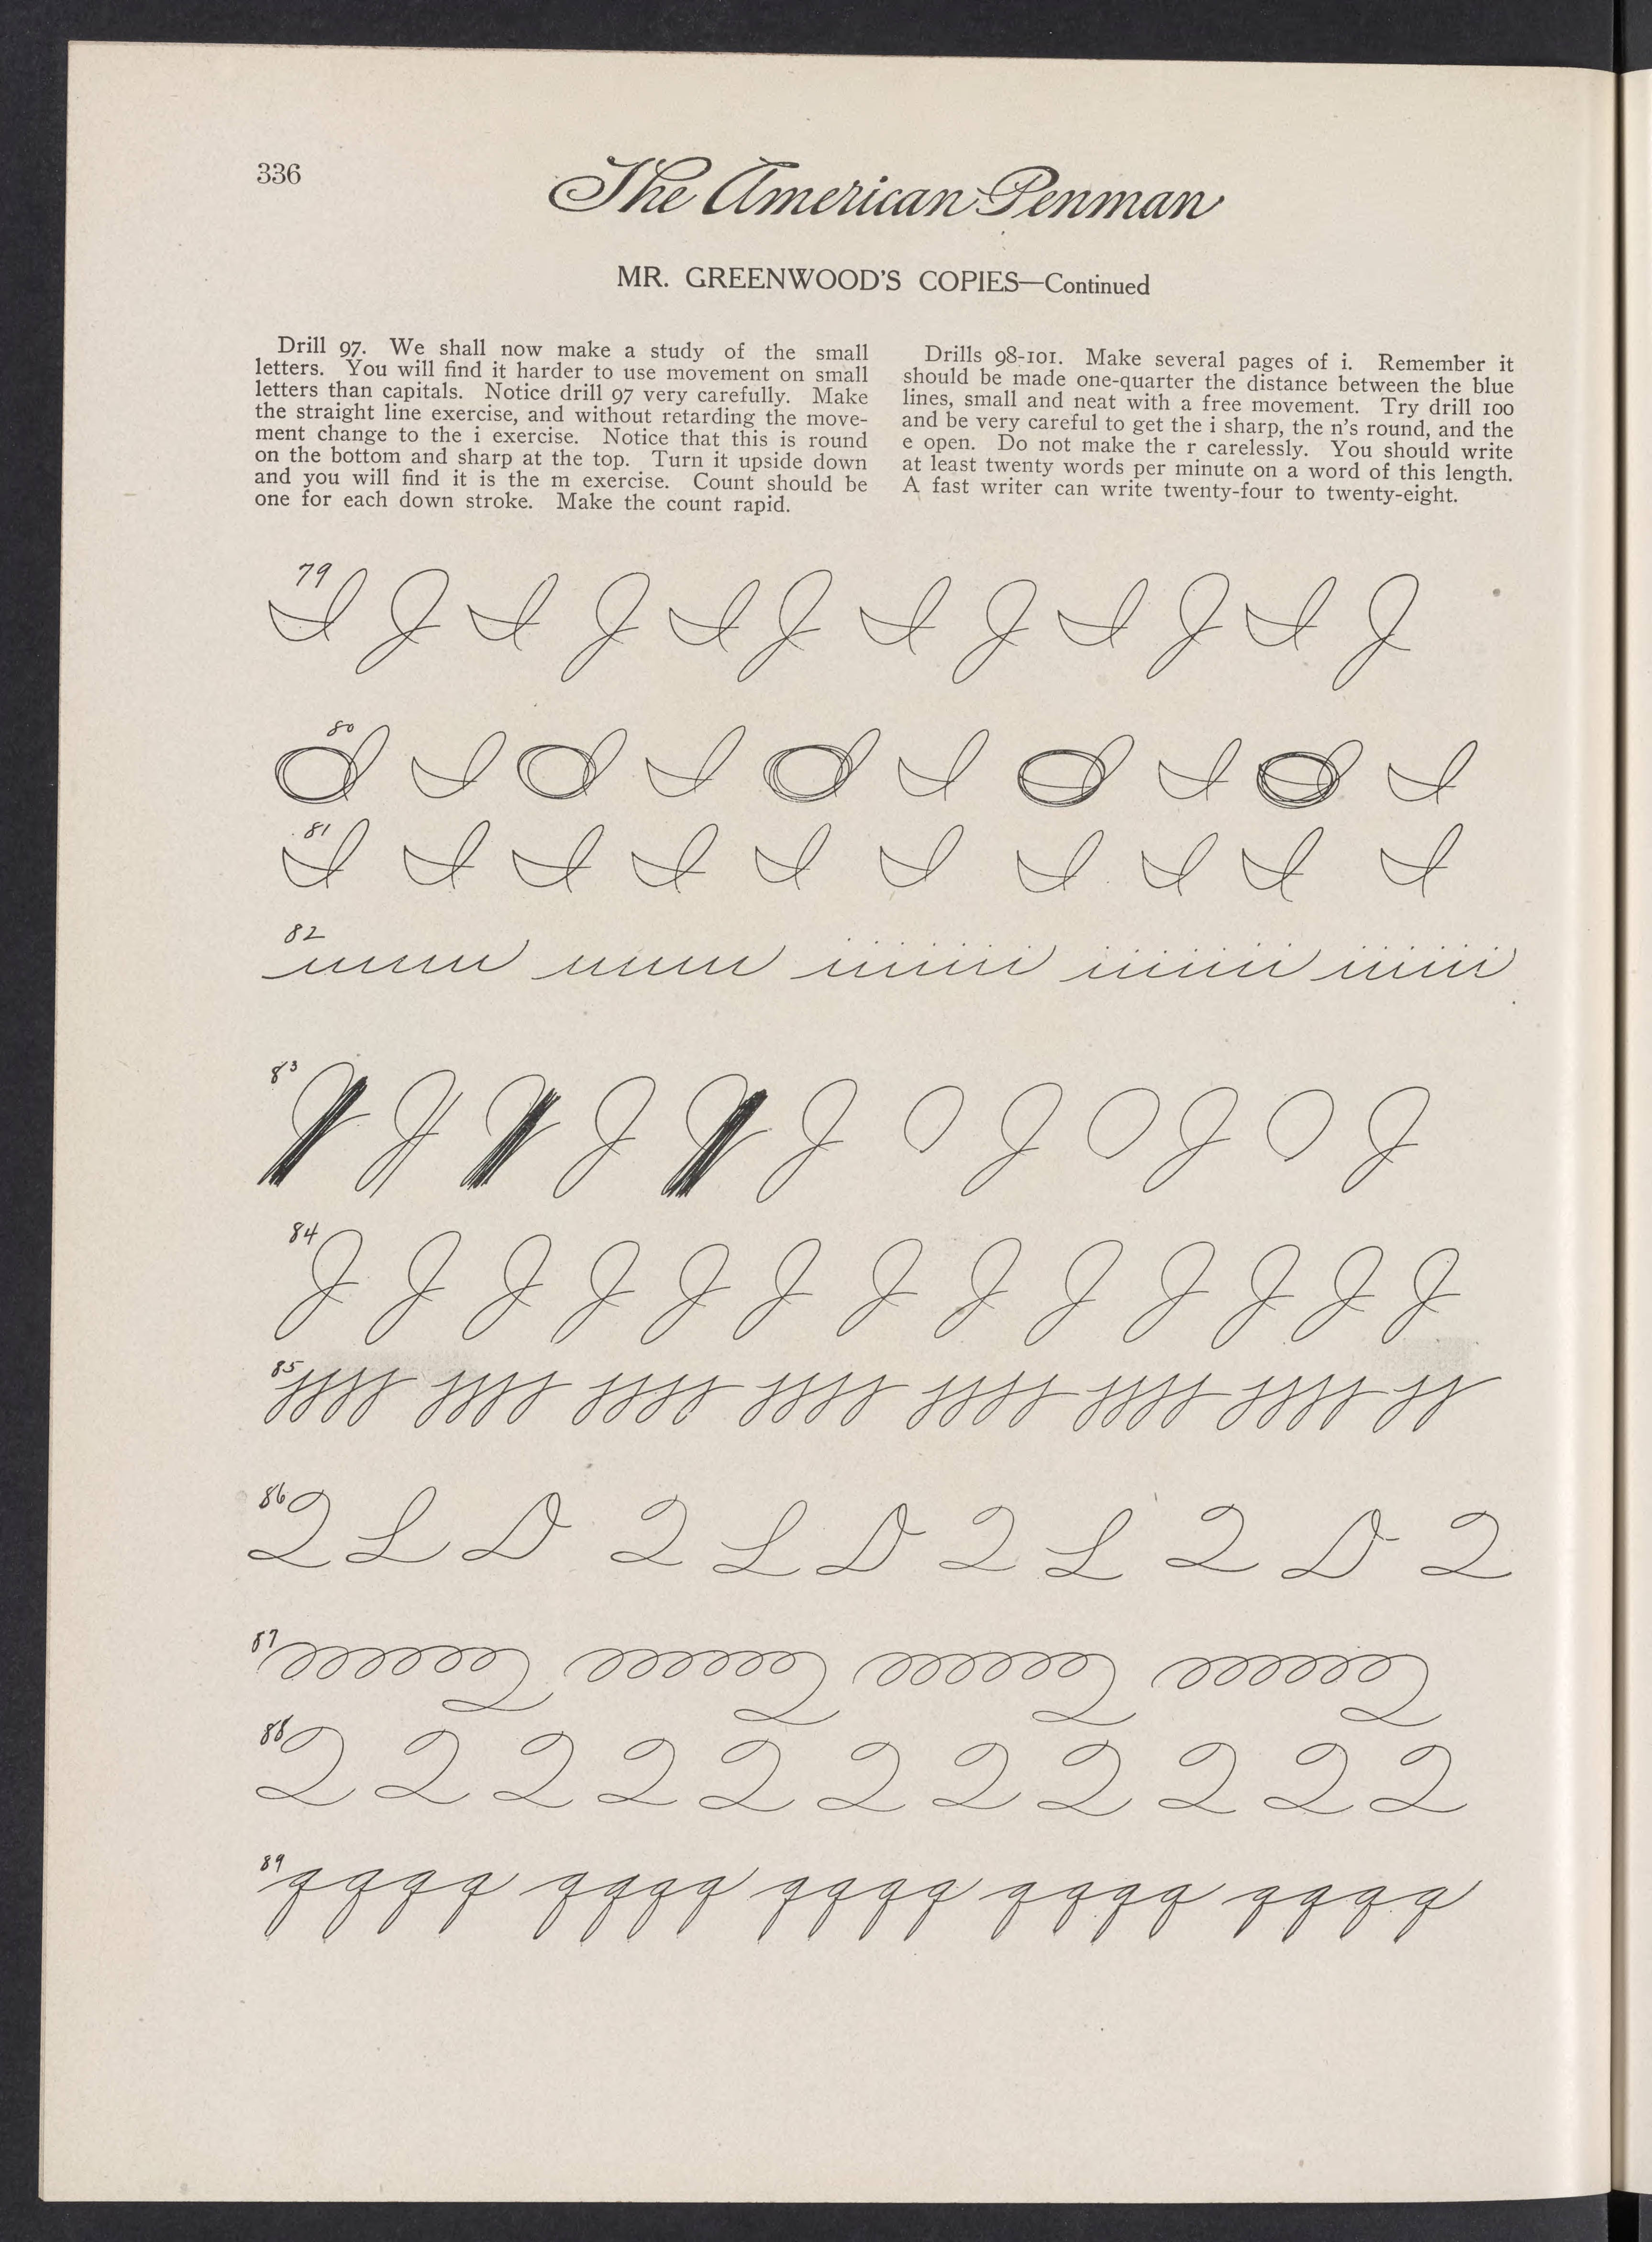 336
The American Penman
MR. GREENWOOD'S COPIES—Continued
Drill 97. We shall now make a study of the small
letters. You will find it harder to use movement on small
letters than capitals. Notice drill 97 very carefully. Make
the straight line exercise, and without retarding the move-
ment change to the i exercise. Notice that this is round
on the bottom and sharp at the top. Turn it upside down
and you will find it is the m exercise. Count should be
one for each down stroke. Make the count rapid.
Drills 98-101. Make several pages of i. Remember it
should be made one-quarter the distance between the blue
lines, small and neat with a free movement. Try drill 100
and be very careful to get the i sharp, the n's round, and the
e open. Do not make the r carelessly. You should write
at least twenty words per minute on a word of this length.
A fast writer can write twenty-four to twenty-eight.
79
I J I J I J I J I J I J
80
I I I I I
81
I I I I I I I I I I
82
iiiiii iiiiii iiiiii
83
J J J J J J J J J
84
J J J J J J J J J J J J J
85
86
Q L D Q L D Q L Q D Q
87
88
Q Q Q Q Q Q Q Q Q Q Q
89
qqqq qqqq qqqq qqqq qqqq